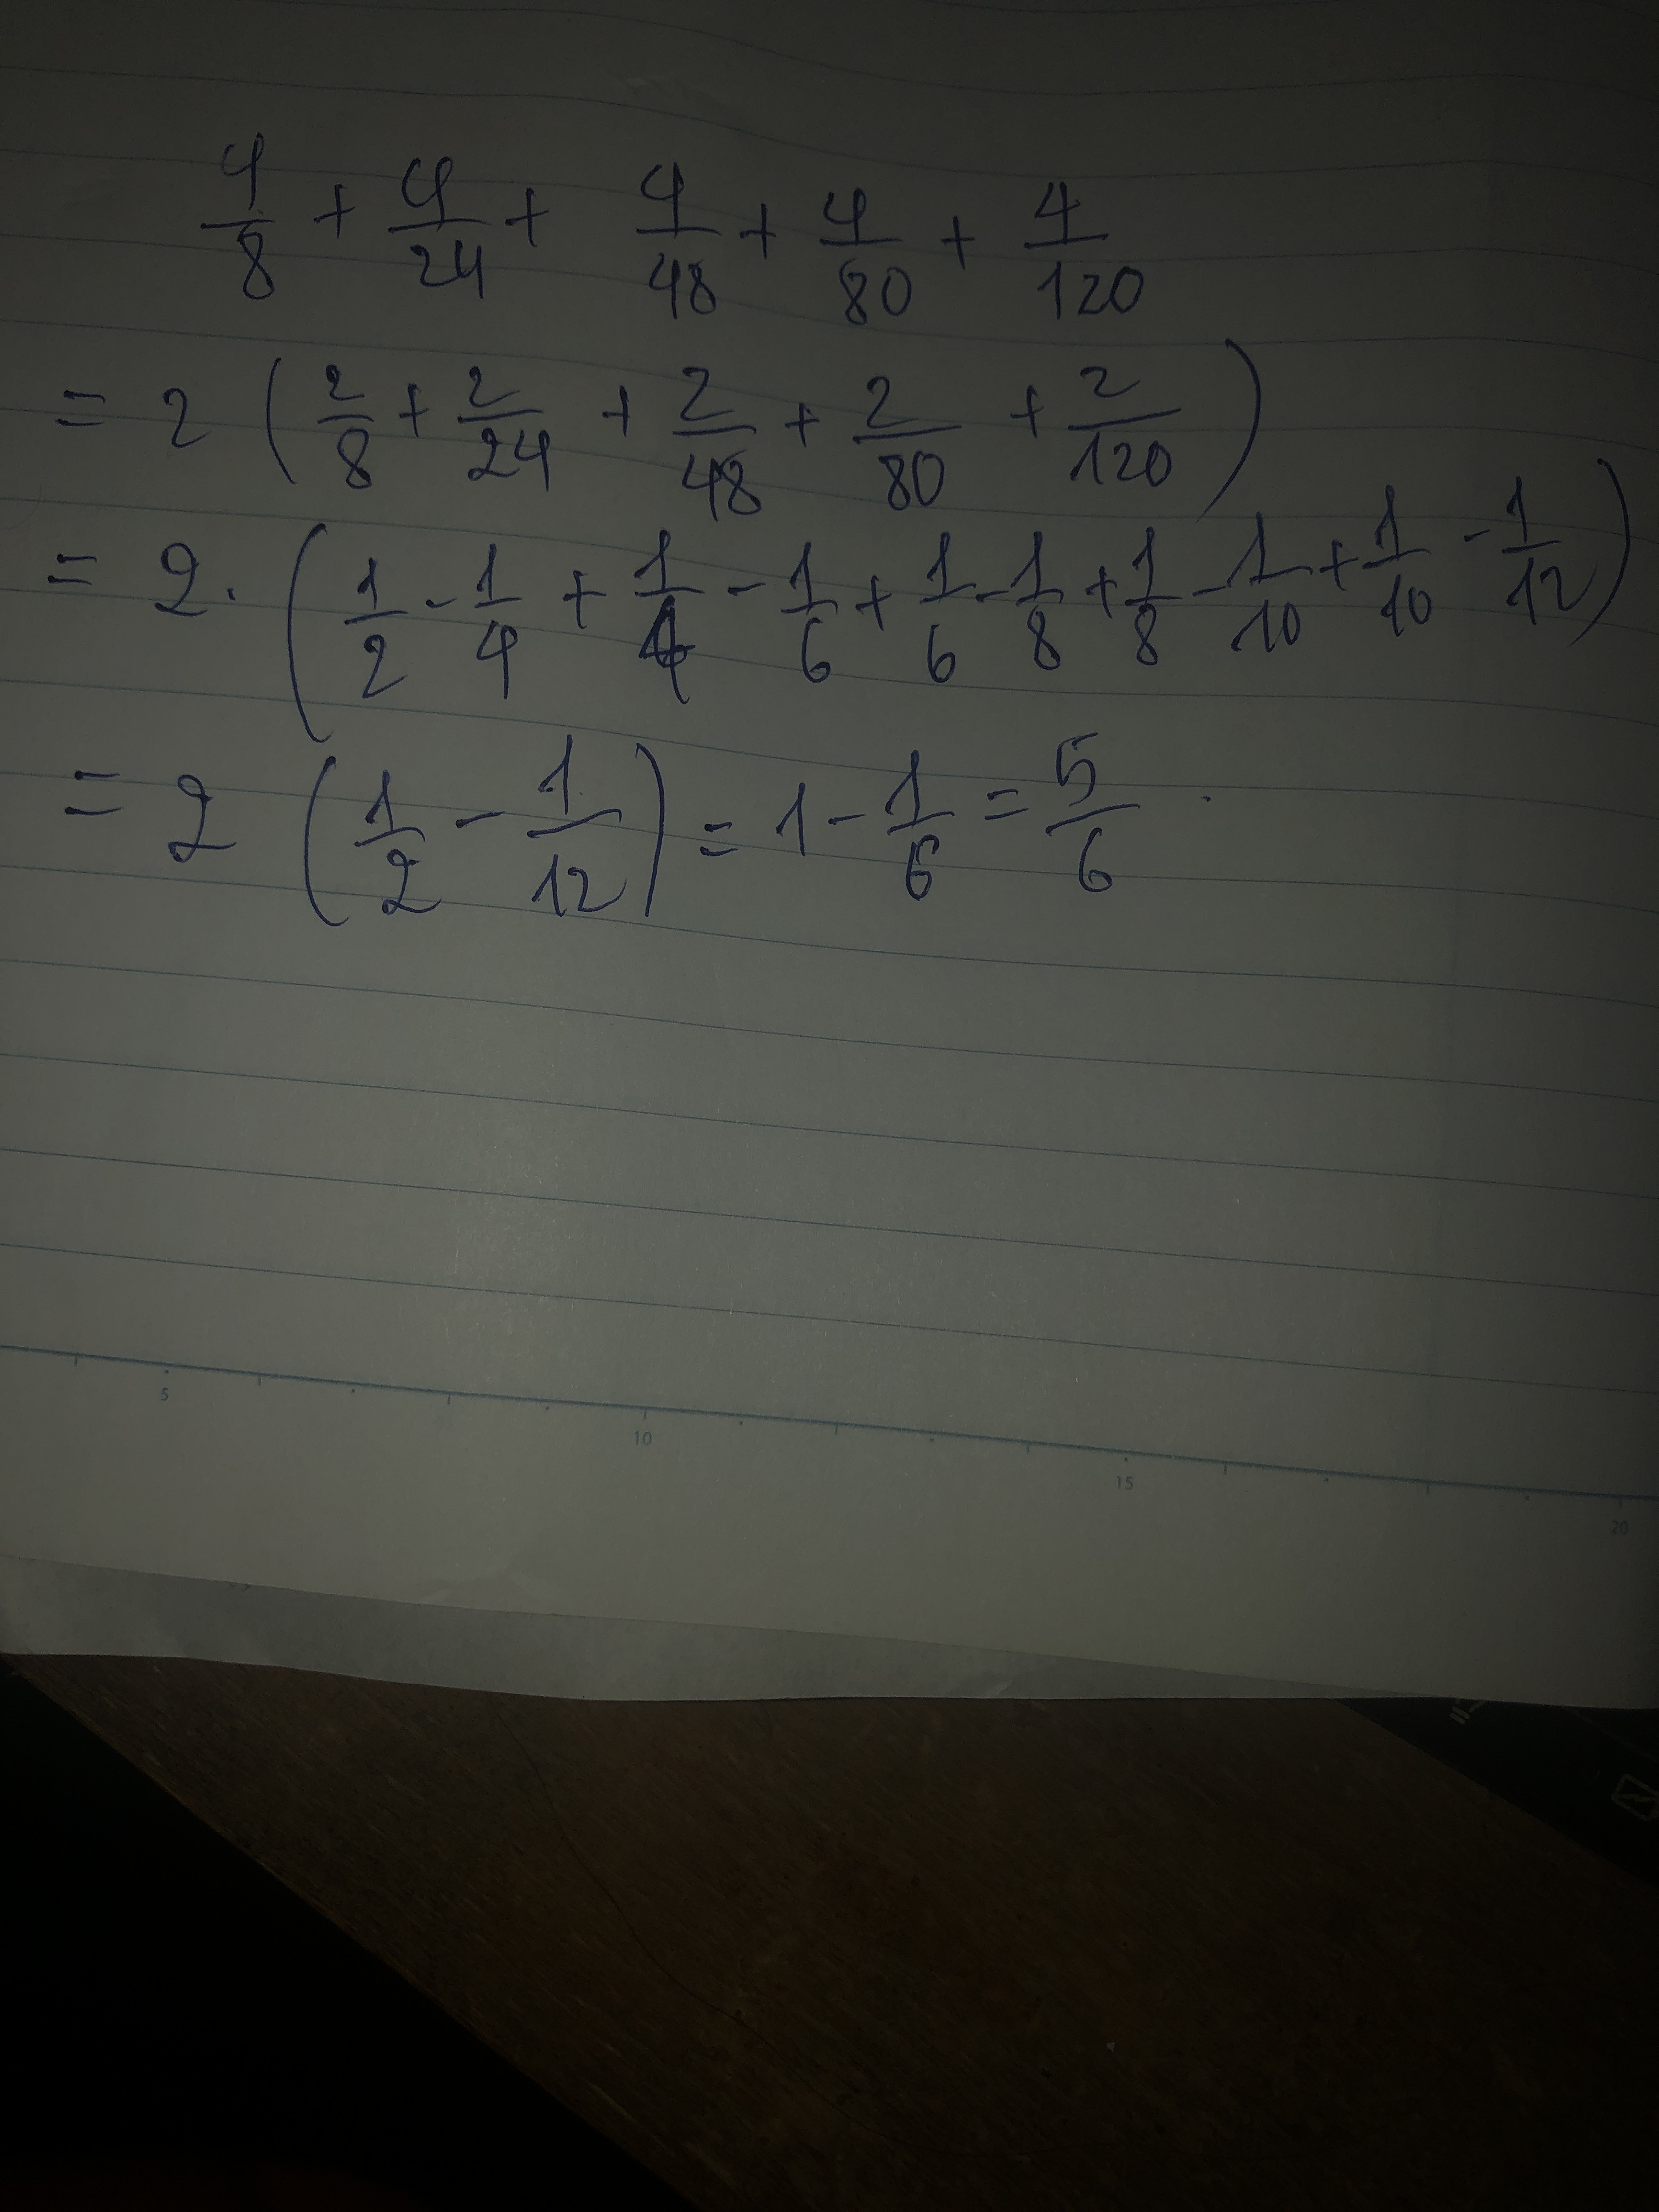 4/8 + 4/24 + 4/48 + 4/80 + 4/120
= 2 (2/8 + 2/24 + 2/48 + 2/80 + 2/120)
= 2. (1/2 - 1/4 + 1/4 - 1/6 + 1/6 - 1/8 + 1/8 - 1/10 + 1/10 - 1/12)
= 2 (1/2 - 1/12) = 1 - 1/6 = 5/6
5 10 15 20